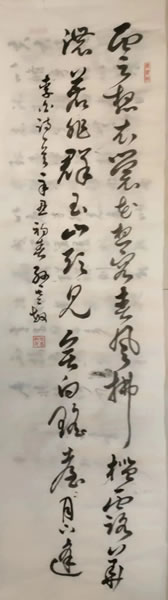 雲想衣裳花想容春風拂檻露華
濃若非群玉山頭見會向瑤臺月下逢
李白詩一首辛丑初春